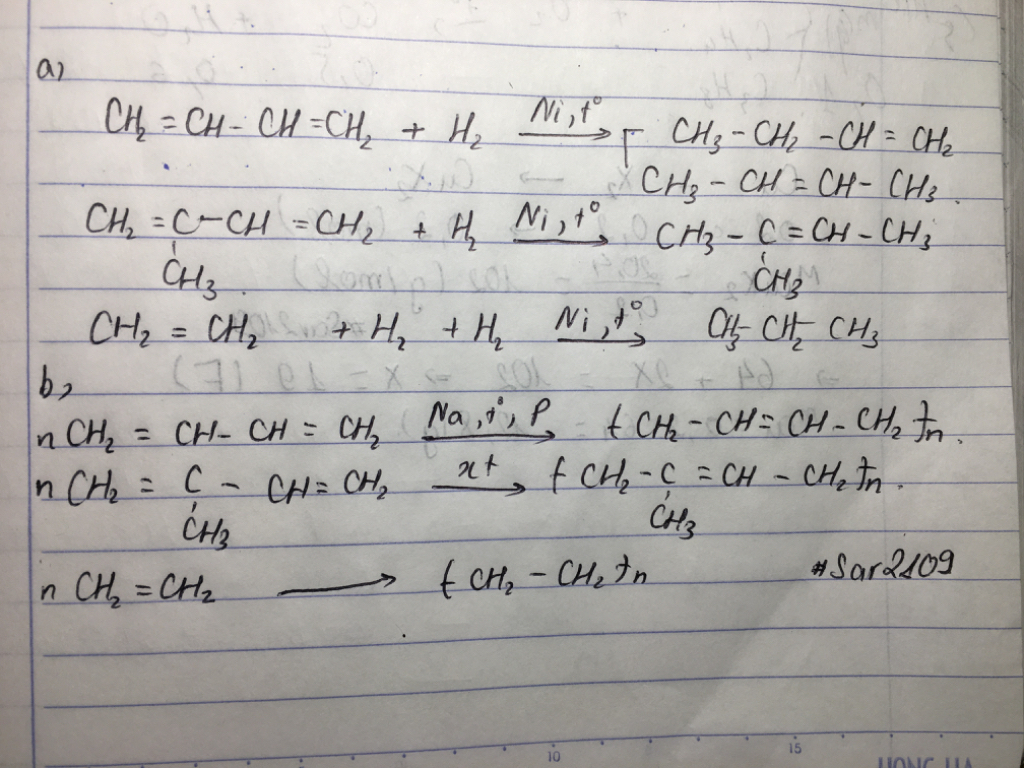 a)
CH₂ = CH - CH = CH₂ + H₂ Ni, t° → CH₃ - CH₂ - CH = CH₂
CH₃ - CH = CH - CH₃.
CH₂ = C - CH = CH₂ + H₂ Ni, t° → CH₃ - C = CH - CH₃
CH₃ CH₃
CH₂ = CH₂ + H₂ + H₂ Ni, t° → CH₃ - CH₂ - CH₃
b)
n CH₂ = CH - CH = CH₂ Na, t°, P → ( CH₂ - CH = CH - CH₂ )n.
n CH₂ = C - CH = CH₂ xt → ( CH₂ - C = CH - CH₂ )n.
CH₃ CH₃
n CH₂ = CH₂ → ( CH₂ - CH₂ )n #Sar2109
10 15
HONG HA